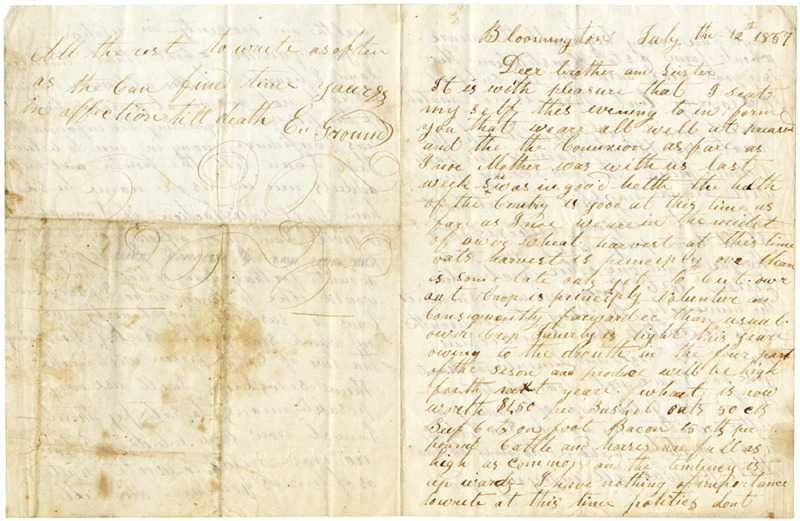 All the rest to write as often
as the Can find time yours
in affection till death Ev Ground
Bloomington July th 12th 1857
Deer brother and Sister
It is with pleasure that I seat
my self this evening to in form
you that we are all well at
and the the Connexion as fare as
I noe Mother was with us last
week She was in good helth the helth
of the Contry is good at this time as
fare as I noe we are in the midst
of owr wheat harvest at this time
oats harvest is principly ove thare
is some late oats yet to Cut owr
oat Crop is principly volunter and
Consequently forwarder than usual
ower Crop is light this year
owing to the drouth in the four part
of the seson and produce will be high
for the next year wheat is now
worth $1.50 per Bushel oats 50 cts
Beef 6cts on foot Bacon 15 cts per
pound Cattle and horses are full as
high as common and the tendency is
up wards I have nothing of importance
to write at this time politics dont